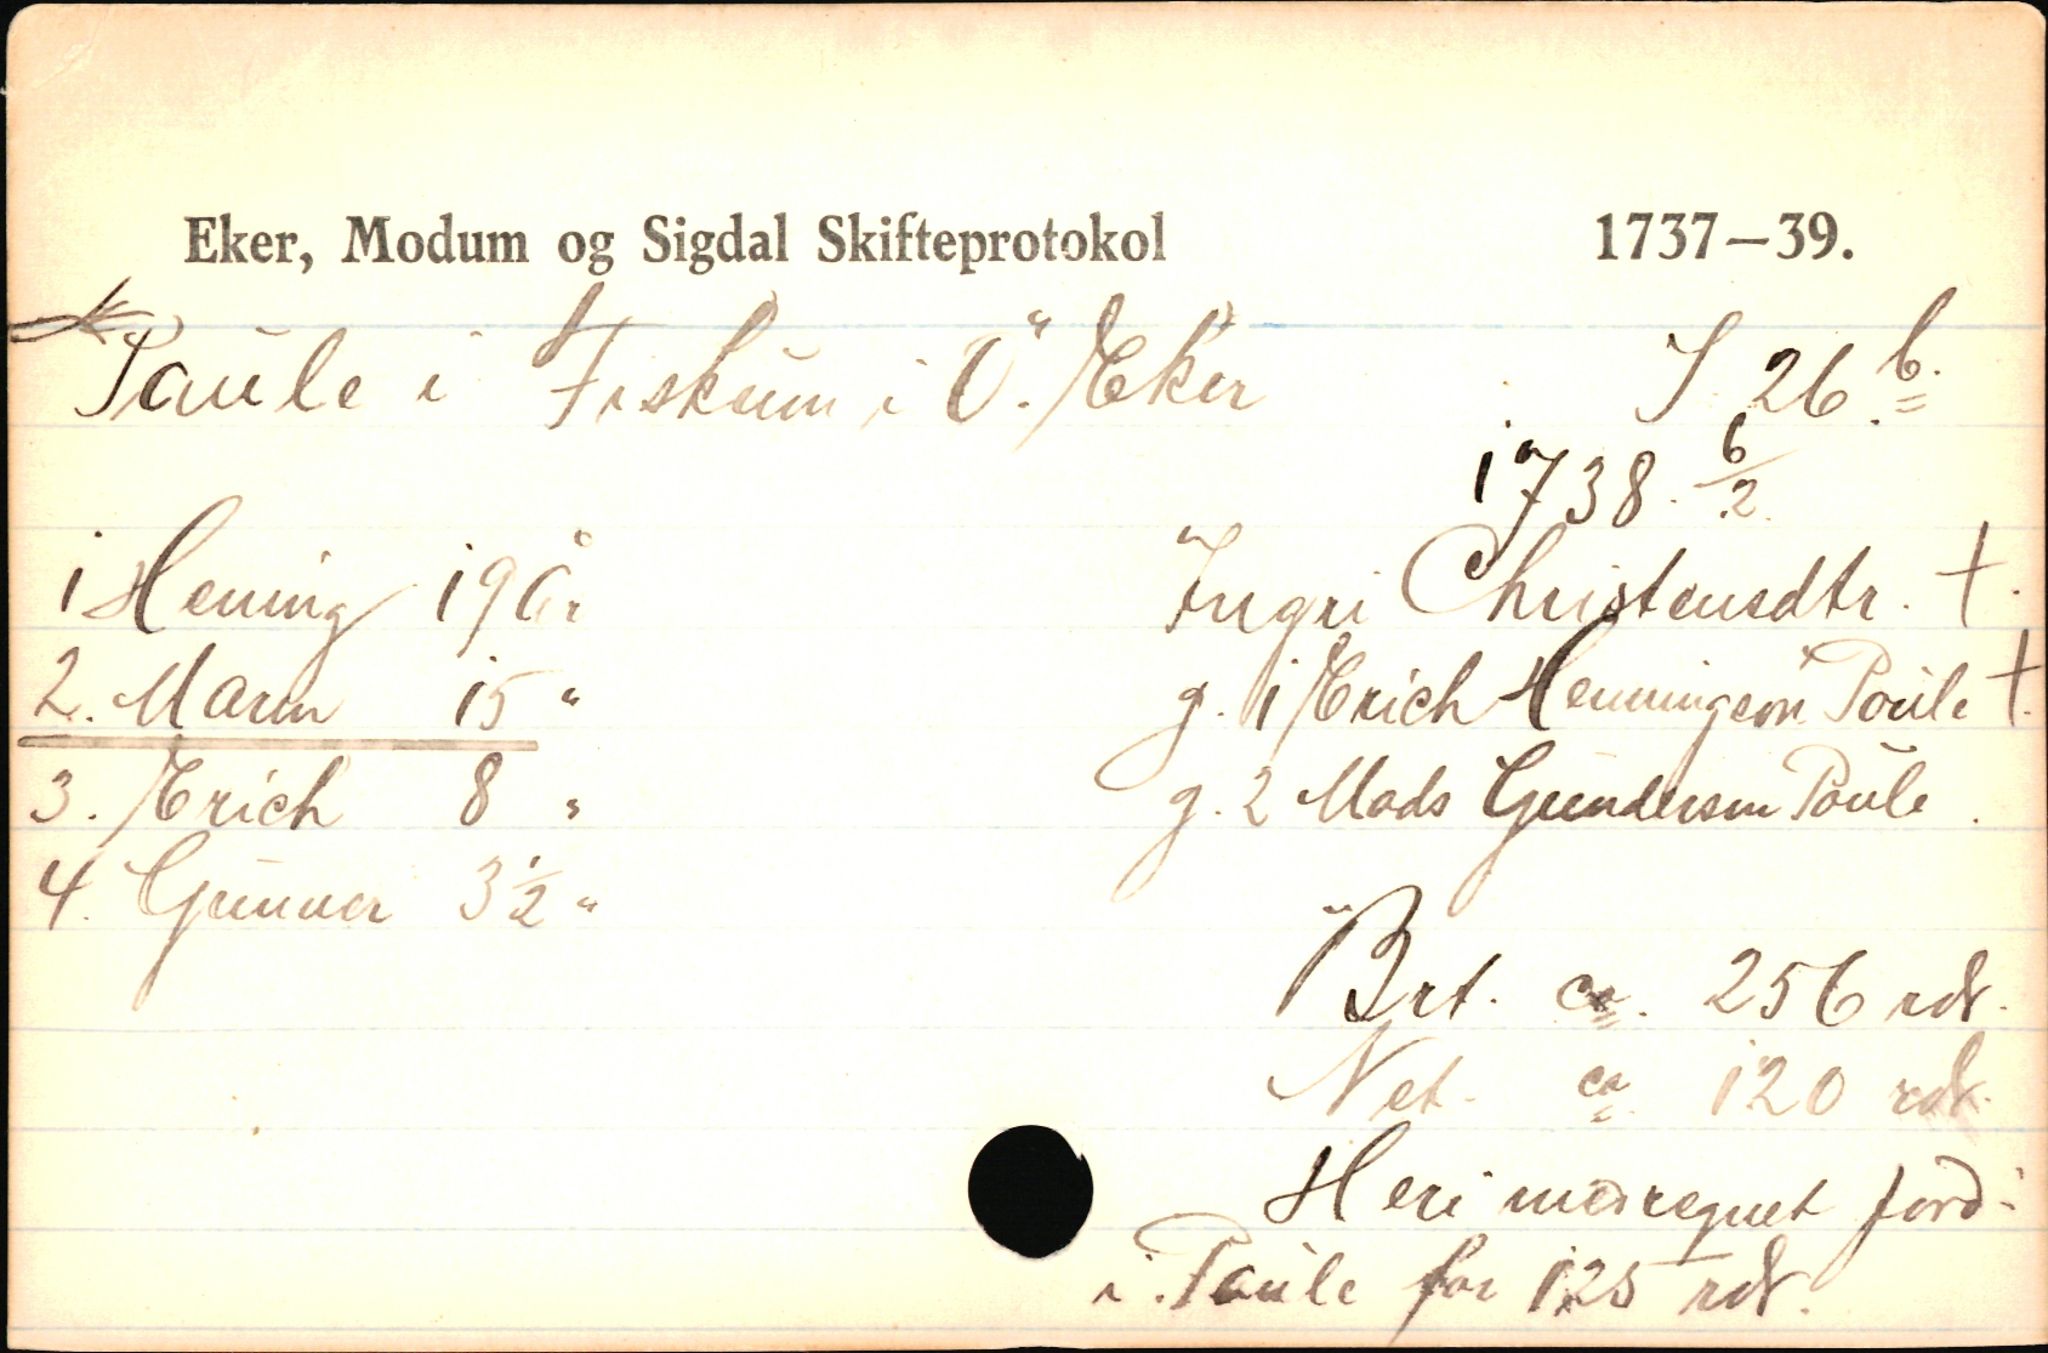 Eker, Modum og Sigdal Skifteprotokol 1737–39.
Paule i Fiskum i Ö. Eker S 26 b.
1738. 6/2
1 Hening 19 år Ingri Christensdtr. †.
2. Maren 15 " g. 1 Erich Henningsön Poule †.
3. Erich 8 " g. 2 Mads Gundersen Poule.
4. Gunner 3 1/2 "
Brt. ca. 256 rdr.
Net. ca 120 rdr.
Heri medregnet jord
i Paule for 125 rdr.